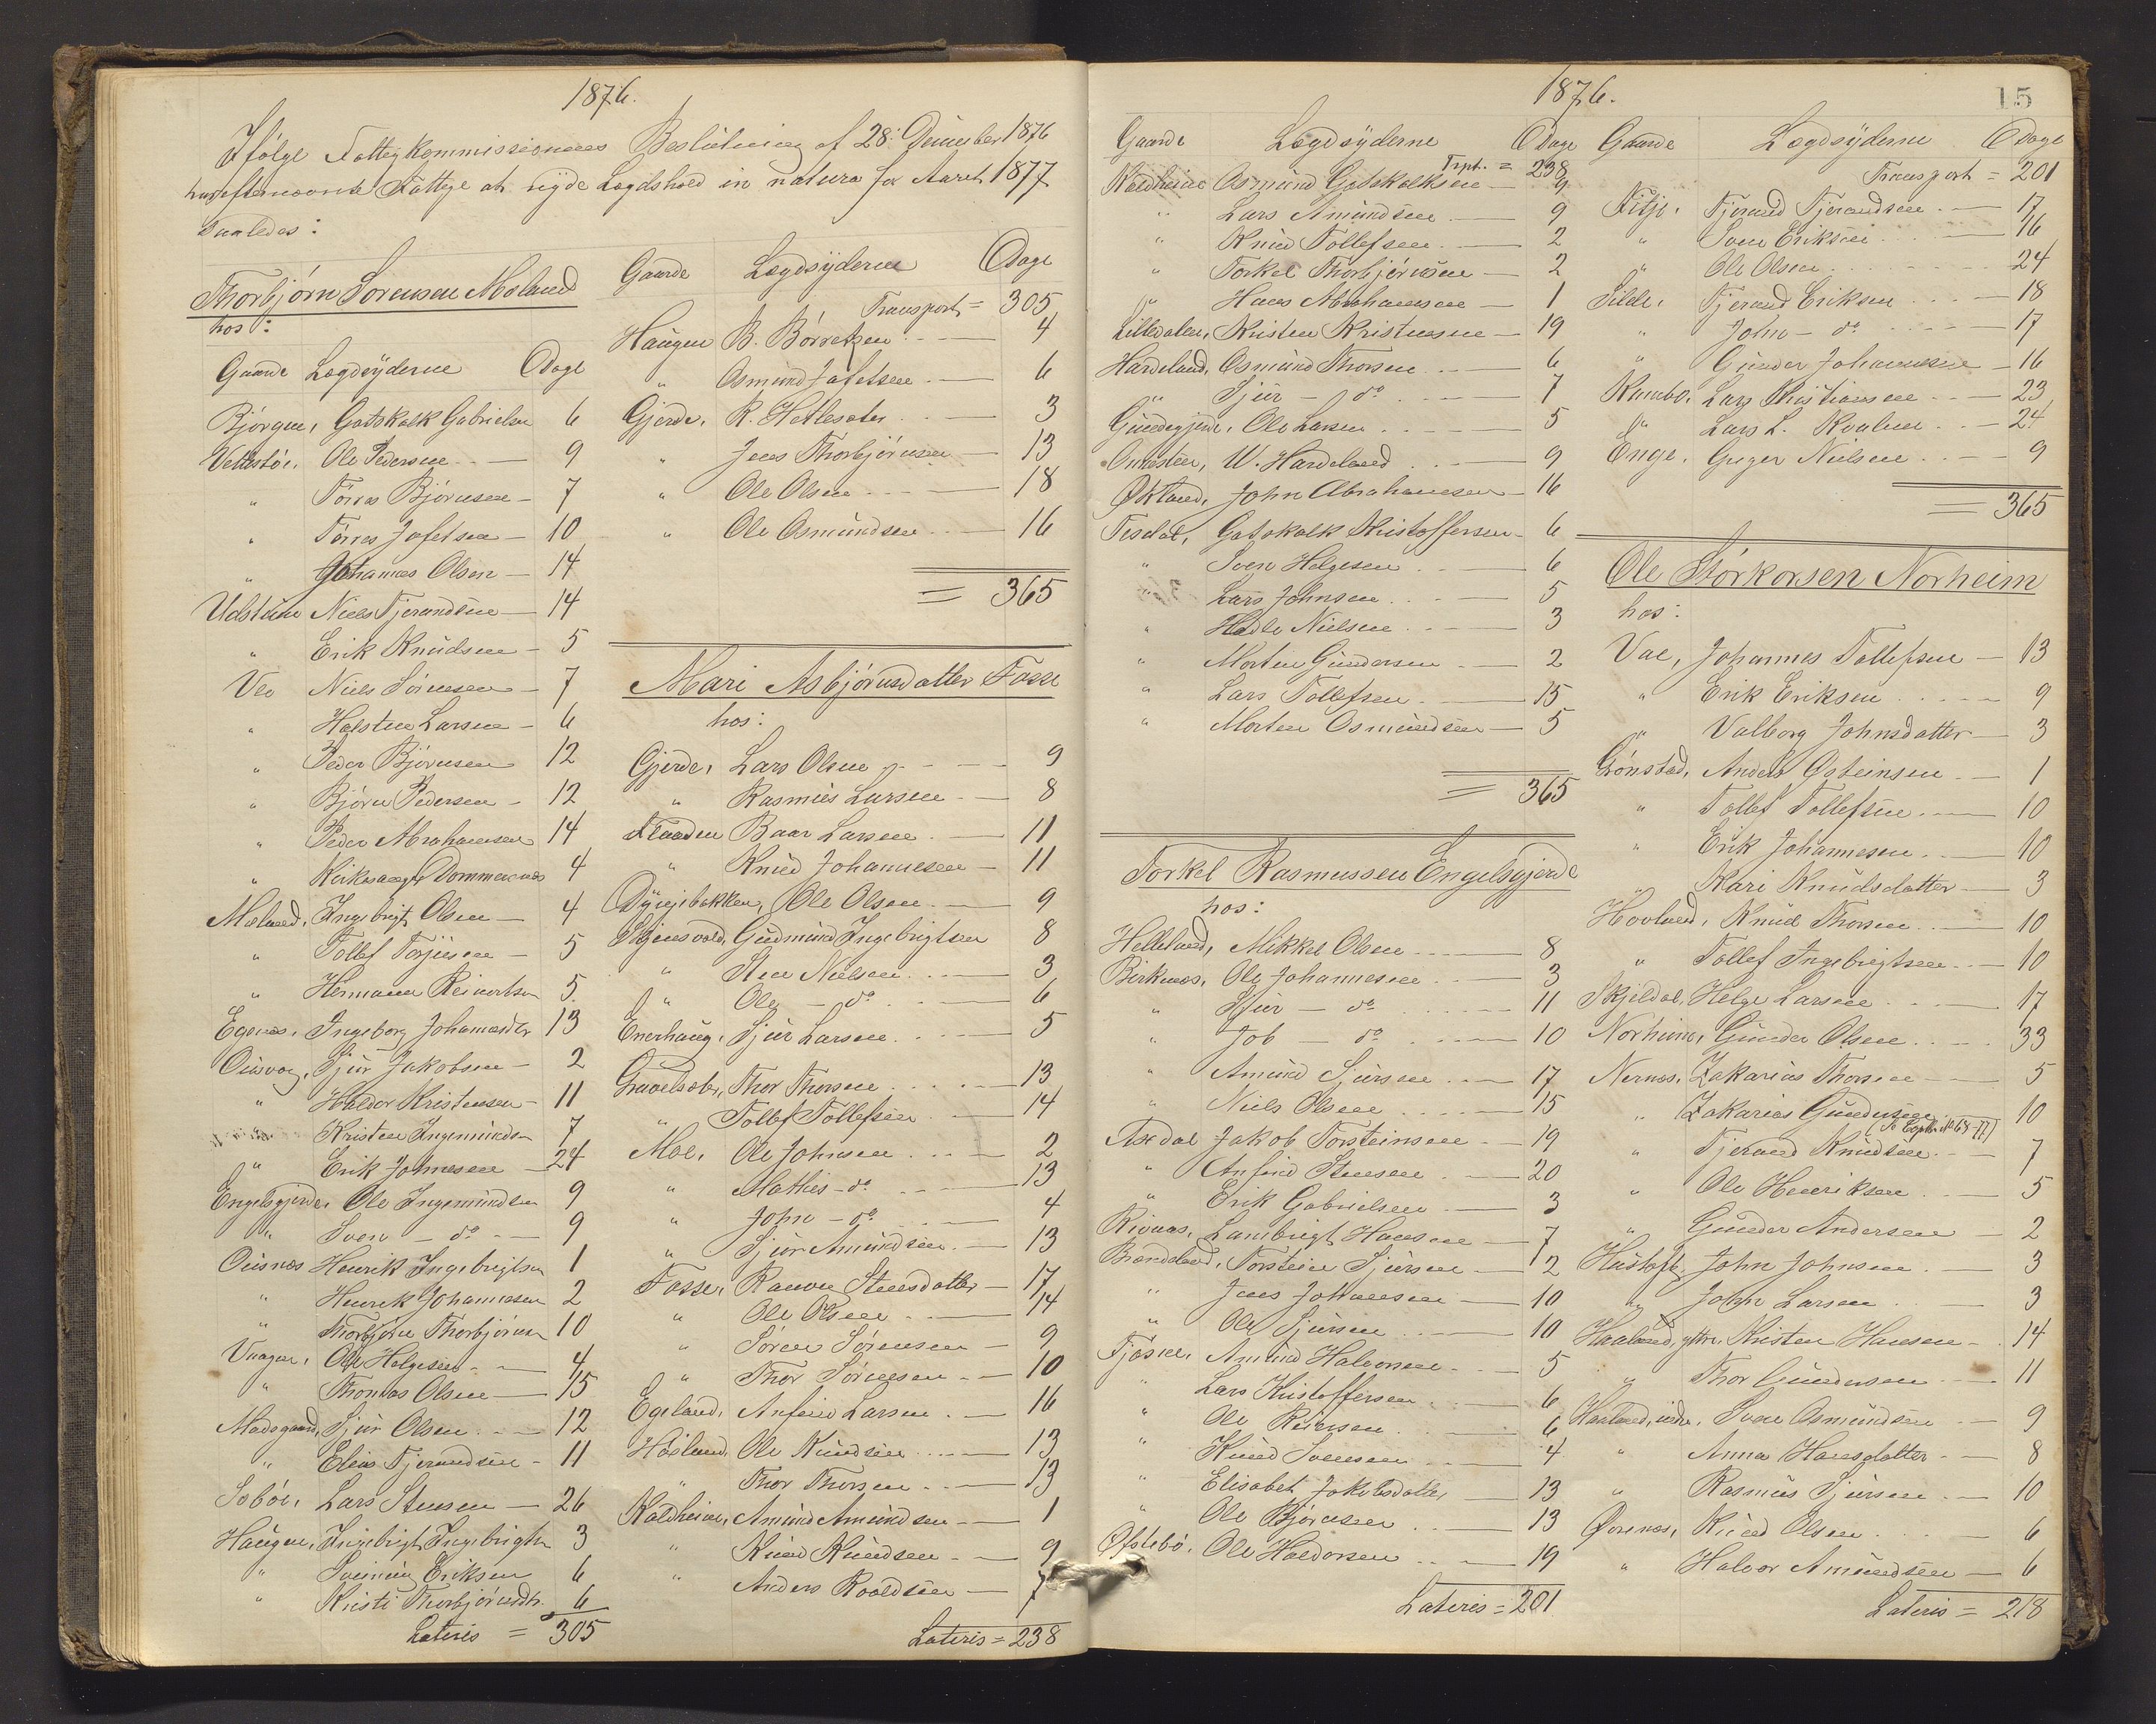 1876.
Ifølge Fattigkommissionens Beslutning af 28. December 1876
har efternævnte Fattige at nyde Lægdshold in natura for Aaret 1877
saaledes:
Thorbjørn Sørensen Moland
hos:
Gaarde Lægdsyderne Dage
Bjørgen, Gotskalk Gabrielsen 6
Vettestøe, Ole Pedersen 9
" Tørres Bjørnsen 7
" Tørres Jafetsen 10
" Johannes Olsen 14
Udsteen Niels Tjerandsen 14
" Erik Knudsen 5
Veo Niels Sørensen 7
" Holsten Larsen 6
" Peder Bjørnsen 12
" Bjørn Pedersen 12
" Peder Abrahamsen 14
" Dommersnes 4
Moland, Ingebrigt Olsen 4
" Tollef Torjusen 5
" Hermann Reinertsen 5
Egenes, Ingeborg Johannesdtr 13
Ølsvog, Sjur Jakobsen 2
" Haldor Kristensen 11
" Kristen Ingemundsen 7
" Erik Johnsen 24
Engelsgjerde, Ole Ingemundsen 9
" Sven - do - 9
Øisnes Henrik Ingebrigtsen 1
" Henrik Johannesen 2
" Thorbjørn Thorbjørnsen 10
Vaagen, Ole Helgesen 4
" Thomas Olsen 15
Madsgaard, Sjur Olsen 12
" Elias Tjerandsen 11
Søbøe, Lars Stensen 26
Haugen, Ingebrigt Ingebrigtsen 3
" Sveinung Eriksen 6
" Kristi Thorbjørnsdtr. 6
Lateris = 305
Gaarde Lægdsyderne Dage
Transport = 305
Haugen B. Børretzen 4
" Osmund Jafetsen 6
Gjerde, R. Hetlesæter 3
" Jens Thorbjørnsen 13
" Ole Olsen 18
" Ole Osmundsen 16
= 365
Mari Asbjørnsdatter Fosse
hos:
Gjerde, Lars Olsen 9
" Rasmus Larsen 8
Flaaden Baar Larsen 11
" Knud Johannesen 11
Dyngjebakken, Ole Olsen 9
Stjensvold, Gudmund Ingebrigtsen 8
" Sten Nielsen 3
" Ole - do 6
Enerhaug, Sjur Larsen 5
Gravelsæter, Thor Thorsen 13
" Tollef Tollefsen 14
Moe, Ole Johnsen 2
" Mathis - do 13
" John - do 4
" Sjur Amundsen 13
Fosse, Ranve Stensdatter 17
" Ole Olsen 14
" Søren Sørensen 9
" Thor Sørensen 10
Egeland, Anfind Larsen 16
Høiland, Ole Knudsen 13
" Thor Thorsen 13
Kaldheim, Amund Amundsen 1
" Knud Knudsen 9
" Anders Roaldsen 7
Lateris = 238
1876.
15
Gaarde Lægdsyderne Dage
Trpt. = 238
Kaldheim Osmund Gotskalksen 9
" Lars Amundsen 9
" Knud Tollefsen 2
" Torkel Thorbjørnsen 2
" Hans Abrahamsen 1
Lilledalen, Kristen Kristensen 19
Hardeland, Osmund Thorsen 6
" Sjur - do 7
Gundegjerde, Ole Larsen 5
Ønesteen, W. Hardeland 9
Økland, John Abrahamsen 16
Tesdal, Gotskalk Kristoffersen 6
" Sven Helgesen 6
" Lars Johnsen 5
" Hadle Nielsen 3
" Morten Gundersen 2
" Lars Tollefsen 15
" Morten Osmundsen 5
= 365
Torkel Rasmussen Engelsgjerde
hos:
Helleland, Mikkel Olsen 8
Birknes, Ole Johannesen 3
" Sjur - do 11
" Job - do 10
" Amund Sjursen 17
" Niels Olsen 15
Axdal Jakob Torsteinsen 19
" Anfind Stensen 20
" Erik Gabrielsen 3
Rivnes, Lambrigt Hansen 7
Brændeland, Torstein Sjursen 12
" Jens Johansen 10
" Ole Sjursen 10
Tjøsne, Amund Halvorsen 5
" Lars Kristoffersen 6
" Ole Reiersen 6
" Knud Svensen 4
" Elisabet Jakobsdatter 13
" Ole Bjørnsen 13
Øfstebø, Ole Haldorsen 19
Lateris = 201
Gaarde Lægdsyderne Dage
Transport = 201
Fitje, Tjerand Tjerandsen 17
" Sven Eriksen 16
" Ole Olsen 24
Silde, Tjerand Eriksen 18
" John - do 17
" Gunder Johannesen 16
Rambo, Lars Kristiansen 23
" Lars L. Kvalen 24
Enge, Greger Nielsen 9
= 365
Ole Størkorsen Norheim
hos:
Vae, Johannes Tollefsen 13
" Erik Eriksen 9
" Valborg Johnsdatter 3
Grønstad, Anders Østeinsen 1
" Tollef Tollefsen 10
" Erik Johannesen 10
" Kari Knudsdatter 3
Hovland, Knud Thorsen 10
" Tollef Ingebrigtsen 10
Skjeldal, Helge Larsen 17
Norheim, Gunder Olsen 33
Nernes, Zakarias Thorsen 5
" Zakarias Gundersen 10
(Se Copib. No 68-77)
" Tjerand Knudsen 7
" Ole Henriksen 5
" Gunder Andersen 2
Hustoft, John Johnsen 3
" John Larsen 3
Haaland, yttre, Kristen Hansen 14
" Thor Gundersen 11
Haaland, indre, Sven Osmundsen 9
" Anna Hansdatter 8
" Rasmus Sjursen 10
Ørenes, Knud Olsen 6
" Halvor Amundsen 6
Lateris = 218